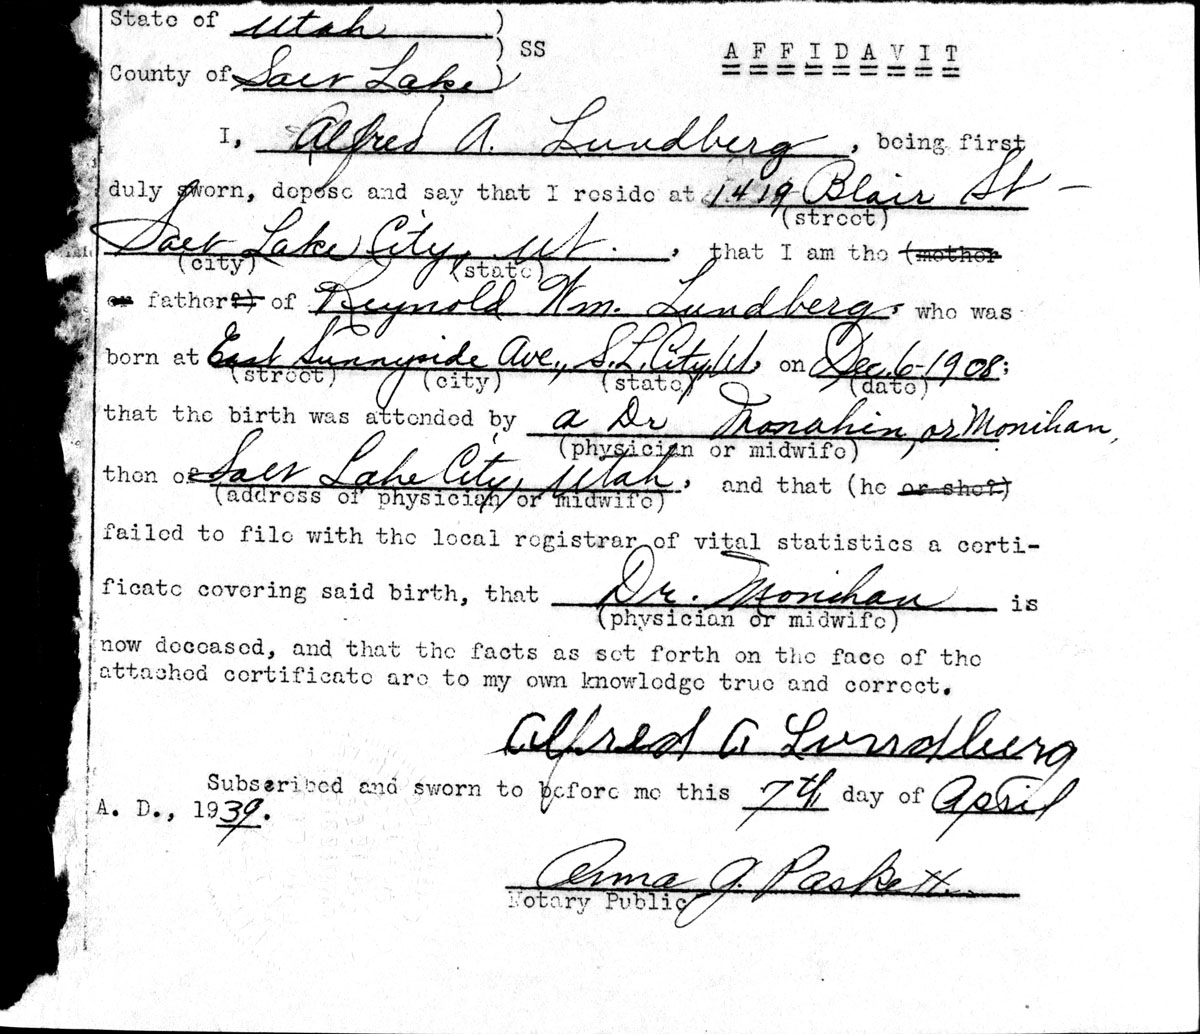 State of Utah )
) SS AFFIDAVIT
County of Salt Lake )
)
I, Alfred A. Lundberg, being first
duly sworn, depose and say that I reside at 1419 Blair St —
(street)
Salt Lake City, Ut., that I am the (mother
(city) (state)
or father?) of Reynold Wm. Lundberg, who was
born at East Sunnyside Ave., S.L.City, Ut. on Dec. 6-1908;
(street) (city) (state) (date)
that the birth was attended by a Dr Monahin, or Monihan,
(physician or midwife)
then of Salt Lake City, Utah, and that (he or she?)
(address of physician or midwife)
failed to file with the local registrar of vital statistics a certi-
ficate covering said birth, that Dr. Monihan is
(physician or midwife)
now deceased, and that the facts as set forth on the face of the
attached certificate are to my own knowledge true and correct.
Alfred A Lundberg
Subscribed and sworn to before me this 7th day of April
A. D., 1939.
J. Paskett
Notary Public